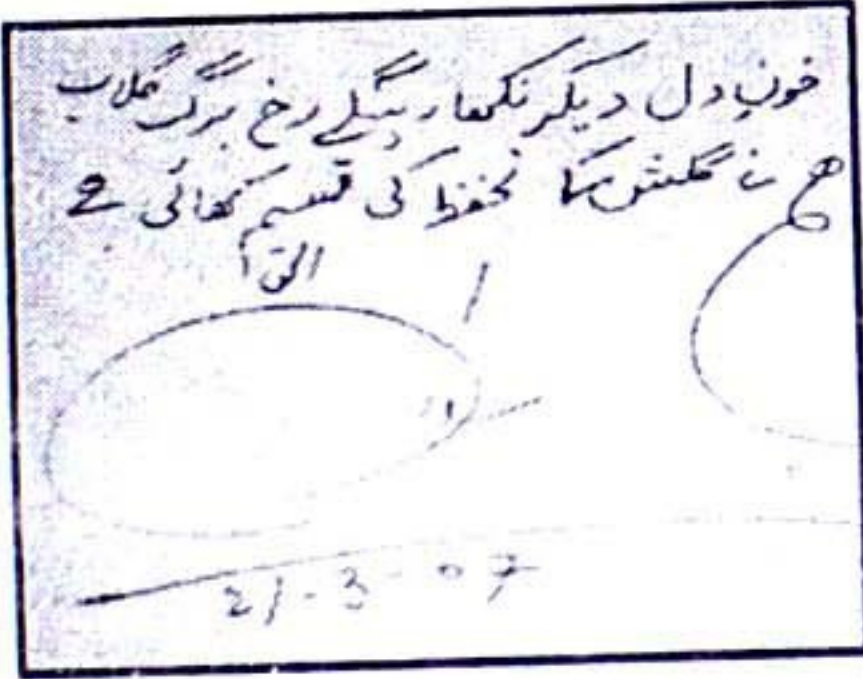 خون دل دیکر نکھاریںگے رخ برگ گلاب
ہم نے گلشن کے تحفظ کی قسم کھائی ہے
21-3-07